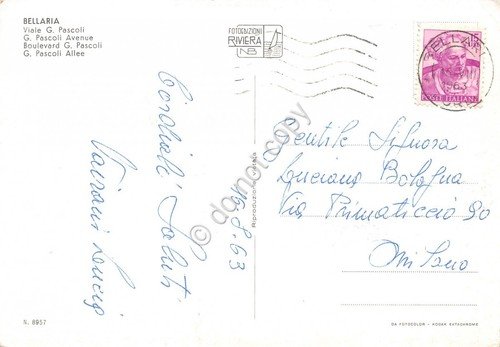 BELLARIA
Viale G. Pascoli
G. Pascoli Avenue
Boulevard G. Pascoli
G. Pascoli Allee
FOTOEDIZIONI
RIVIERA
NB
BELLARIA
63
POSTE ITALIANE
Cordiali Saluti
Luciq
8.63
Riproduzione vietata
Gentile Signora
Luciana Bologna
Via Primaticcio 90
Milano
© damocopy
N. 8957
DA FOTOCOLOR - KODAK EKTACHROME